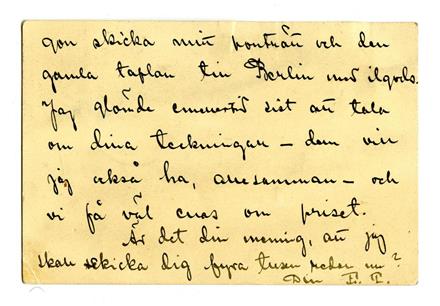 gon skicka mitt porträtt och den
gamla taflan till Berlin med ilgods.
Jag glömde emellertid sist att tala
om dina teckningar – dem vill
jag också ha, allesamman – och
vi få väl enas om priset.
Är det din mening, att jag
skall skicka dig fyra tusen redan nu?
Din